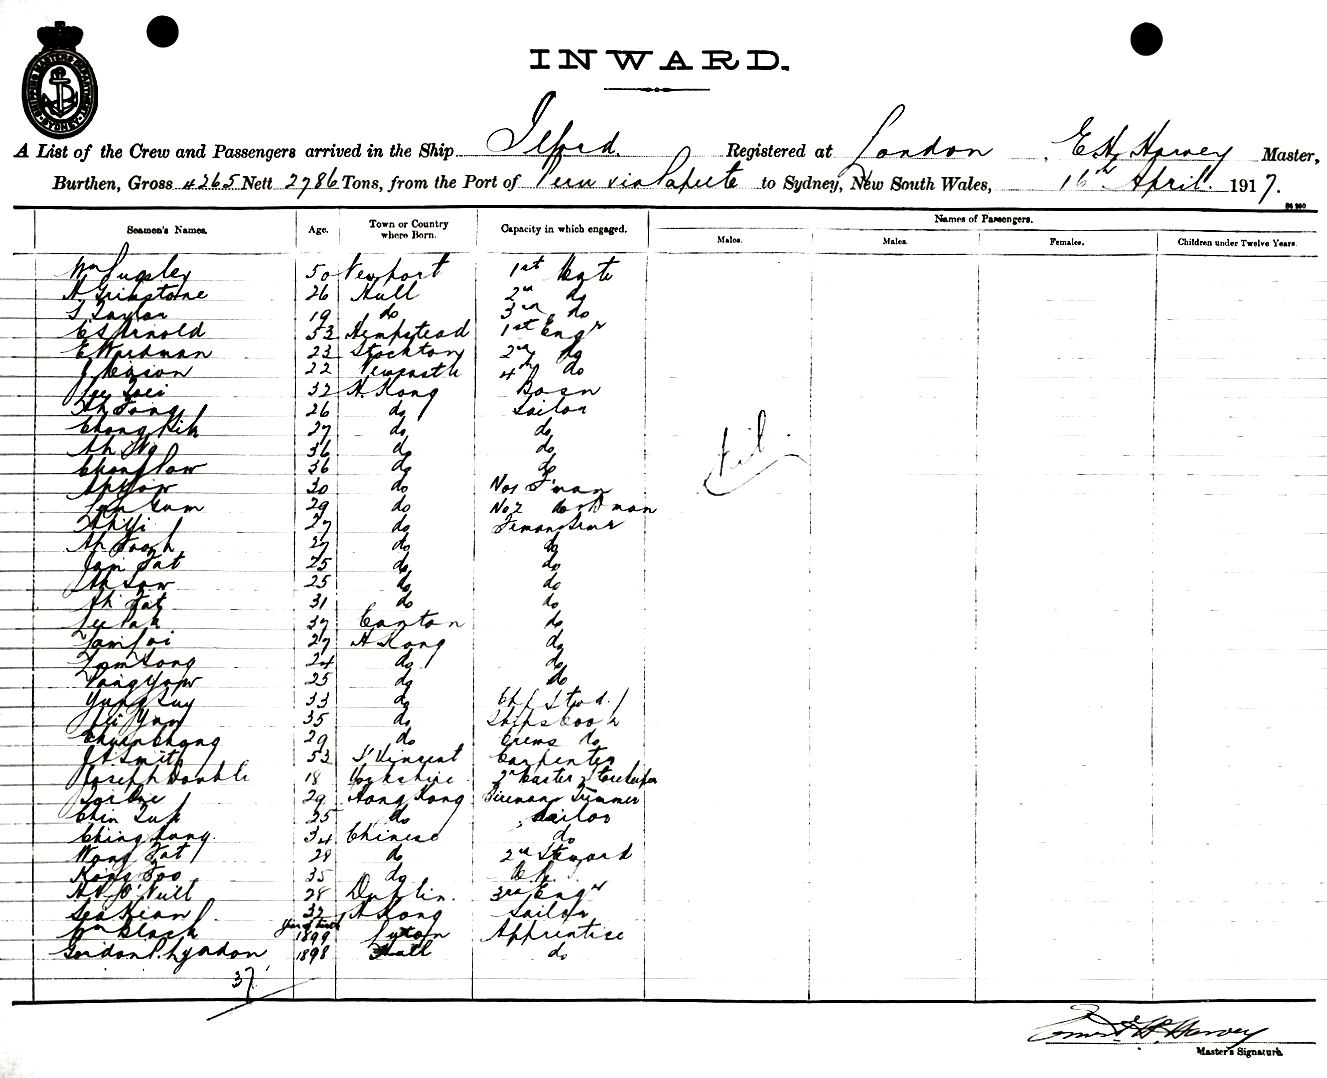 INWARD.
SHIPPING MASTERS DEPARTMENT SYDNEY
A List of the Crew and Passengers arrived in the Ship Ilford. Registered at London, E H Harvey Master,
Burthen, Gross 4265 Nett 2786 Tons, from the Port of Peru via Papeete to Sydney, New South Wales, 16th April. 1917.
Seamen's Names. Age. Town or Country where Born. Capacity in which engaged. Names of Passengers.
Males. Males. Females. Children under Twelve Years.
Wm Pugsley 50 Newport 1st Mate
A Grimstone 26 Hull 2nd do
S Taylor 19 do 3rd do
E S Arnold 53 Hempstead 1st Engr
E Wardman 23 Stockton 2nd do
J 22 Newcastle 4th do
32 H. Kong Bosn
Ah Fong 26 do Sailor
Chong 27 do do
Ah 36 do do
Chong Pow 36 do do
Ah Yow 30 do No 1 F'man
Lam Sum 29 do No 2
Ah Yi 27 do
Ah 27 do do
Jam Fat 25 do do
Ah Sow 25 do do
Ah Fat 31 do do
37 Canton do
27 H Kong do
Lam Song 24 do do
Yong Yow 25 do do
Yung Suy 33 do Chf Stwd.
35 do Ships Cook
Chuen Chong 29 do Crews do
J A Smith 53 St Vincent Carpenter
Joseph Double 18 Yorkshire Storekeeper
29 Hong Kong Fireman Trimmer
Chin 25 do Sailor
Ching Kung. 34 Chinese do
Wong Fat 29 do 2nd Steward
Kong Foo 35 do
O'Neill 28 Dublin. 3rd Engr
Kian 32 H Kong Sailor
Year of birth
Wm Black 1899 Apprentice
Gordon P. Lyndon 1898 Hull do
37
Nil.
Ernest H. Harvey
Master's Signature.